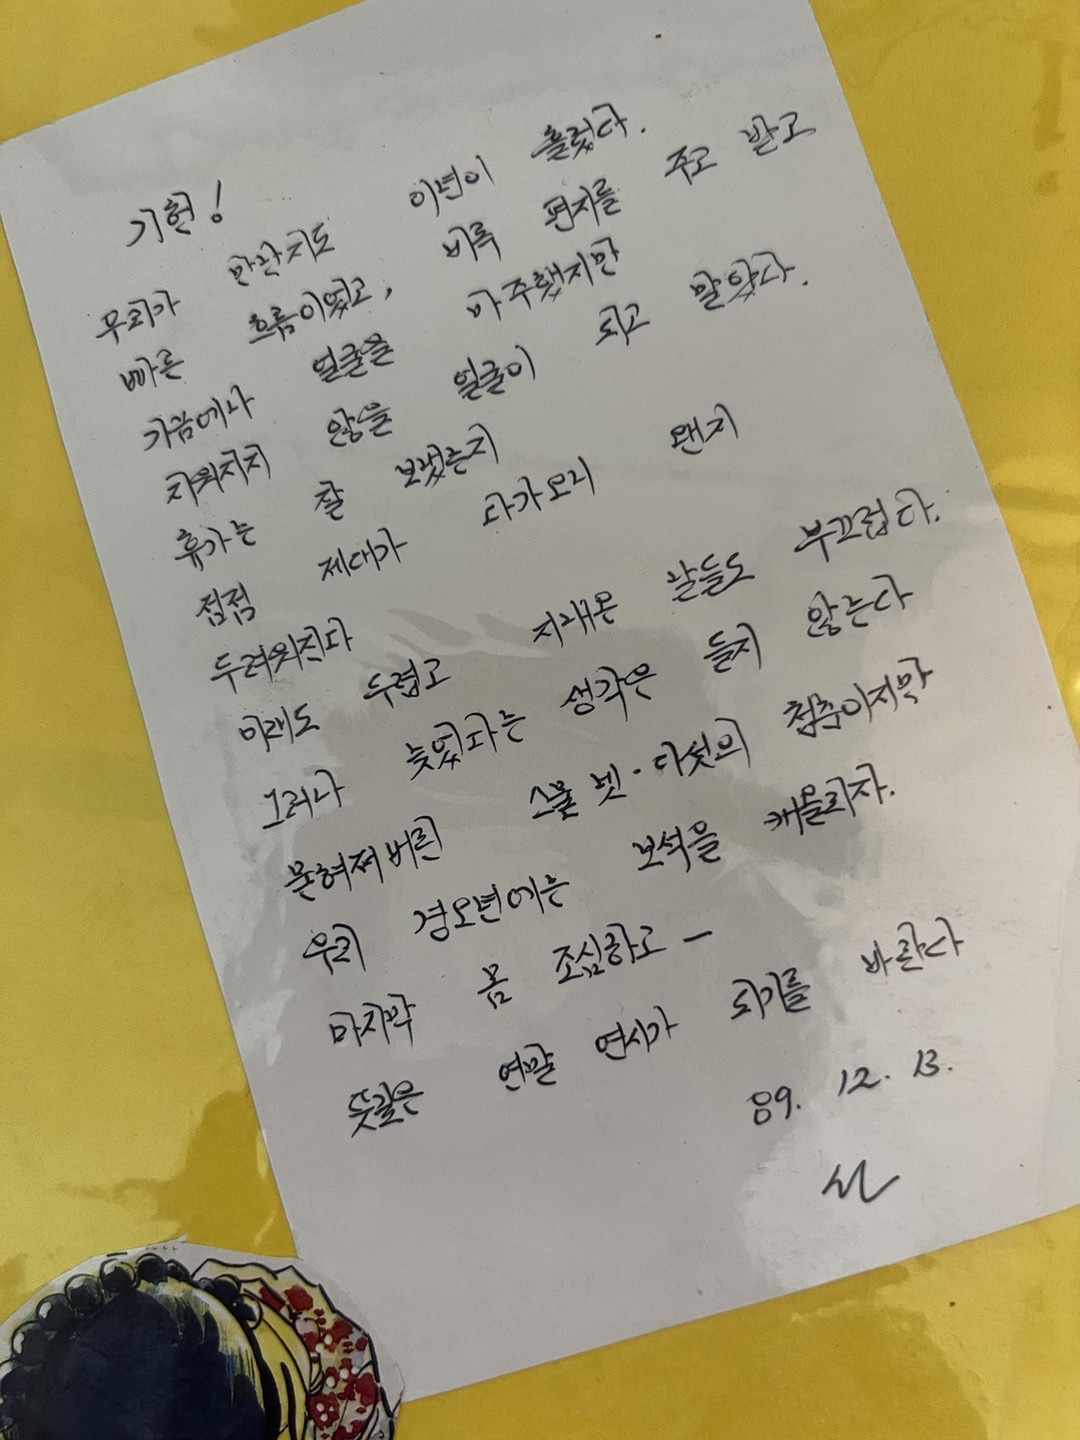 기현!
우리가 만난지도 이년이 흘렀다.
빠른 흐름이었고, 비록 편지를 주고 받고
가끔에나 얼굴을 마주했지만
지워지지 않을 얼굴이 되고 말았다.
휴가는 잘 보냈는지
점점 제대가 다가오니 왠지
두려워진다
미래도 두렵고 지내온 날들도 부끄럽다.
그러나 늦었다는 생각은 들지 않는다
묻혀져버린 스물 넷·다섯의 청춘이지만
우리 경오년에는 보석을 캐올리자.
마지막 몸 조심하고 -
뜻깊은 연말 연시가 되기를 바란다
89. 12. 13.